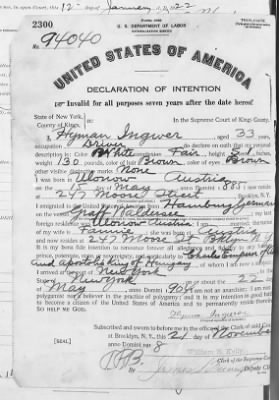 in open Court, this 12 day of January 1922
Form 2202
2300
U. S. DEPARTMENT OF LABOR
94040
UNITED STATES OF AMERICA
DECLARATION OF INTENTION
Invalid for all purposes seven years after the date hereof
State of New York,
County of Kings,
In the Supreme Court of Kings County.
I, Hyman Ingwer, aged 33 years,
occupation Driver, do declare on oath that my personal
description is: Color White, complexion Fair, height
weight 130 pounds, color of hair Brown, color of eyes Brown
other visible distinctive marks None
I was born in Austria
on the 15 day of May, anno Domini 1885; I now reside
at 247 Moore Street, N.Y.
I emigrated to the United States of America from Hamburg Germany
on the vessel Graf Waldersee; my last
foreign residence was Austria; I am married; the name
of my wife is Fannie; she was born at Austria
and now resides at 247 Moore St Bklyn N.Y.
It is my bona fide intention to renounce forever all allegiance and fidelity to any foreign
prince, potentate, state, or sovereignty, and particularly to Charles Emperor of Austria
and apostolic king of Hungary, of whom I am now a subject;
I arrived at the port of New York, in the
State of New York, on or about the 22 day
of May, anno Domini 190; I am not an anarchist; I am not a
polygamist nor a believer in the practice of polygamy; and it is my intention in good faith
to become a citizen of the United States of America and to permanently reside therein:
SO HELP ME GOD.
Hyman Ingwer
Subscribed and sworn to before me in the office of the Clerk of said Court
at Brooklyn, N. Y., this 21 day of November
anno Domini 191 8
[SEAL]
William E. Kelly
Clerk of the Supreme Court.